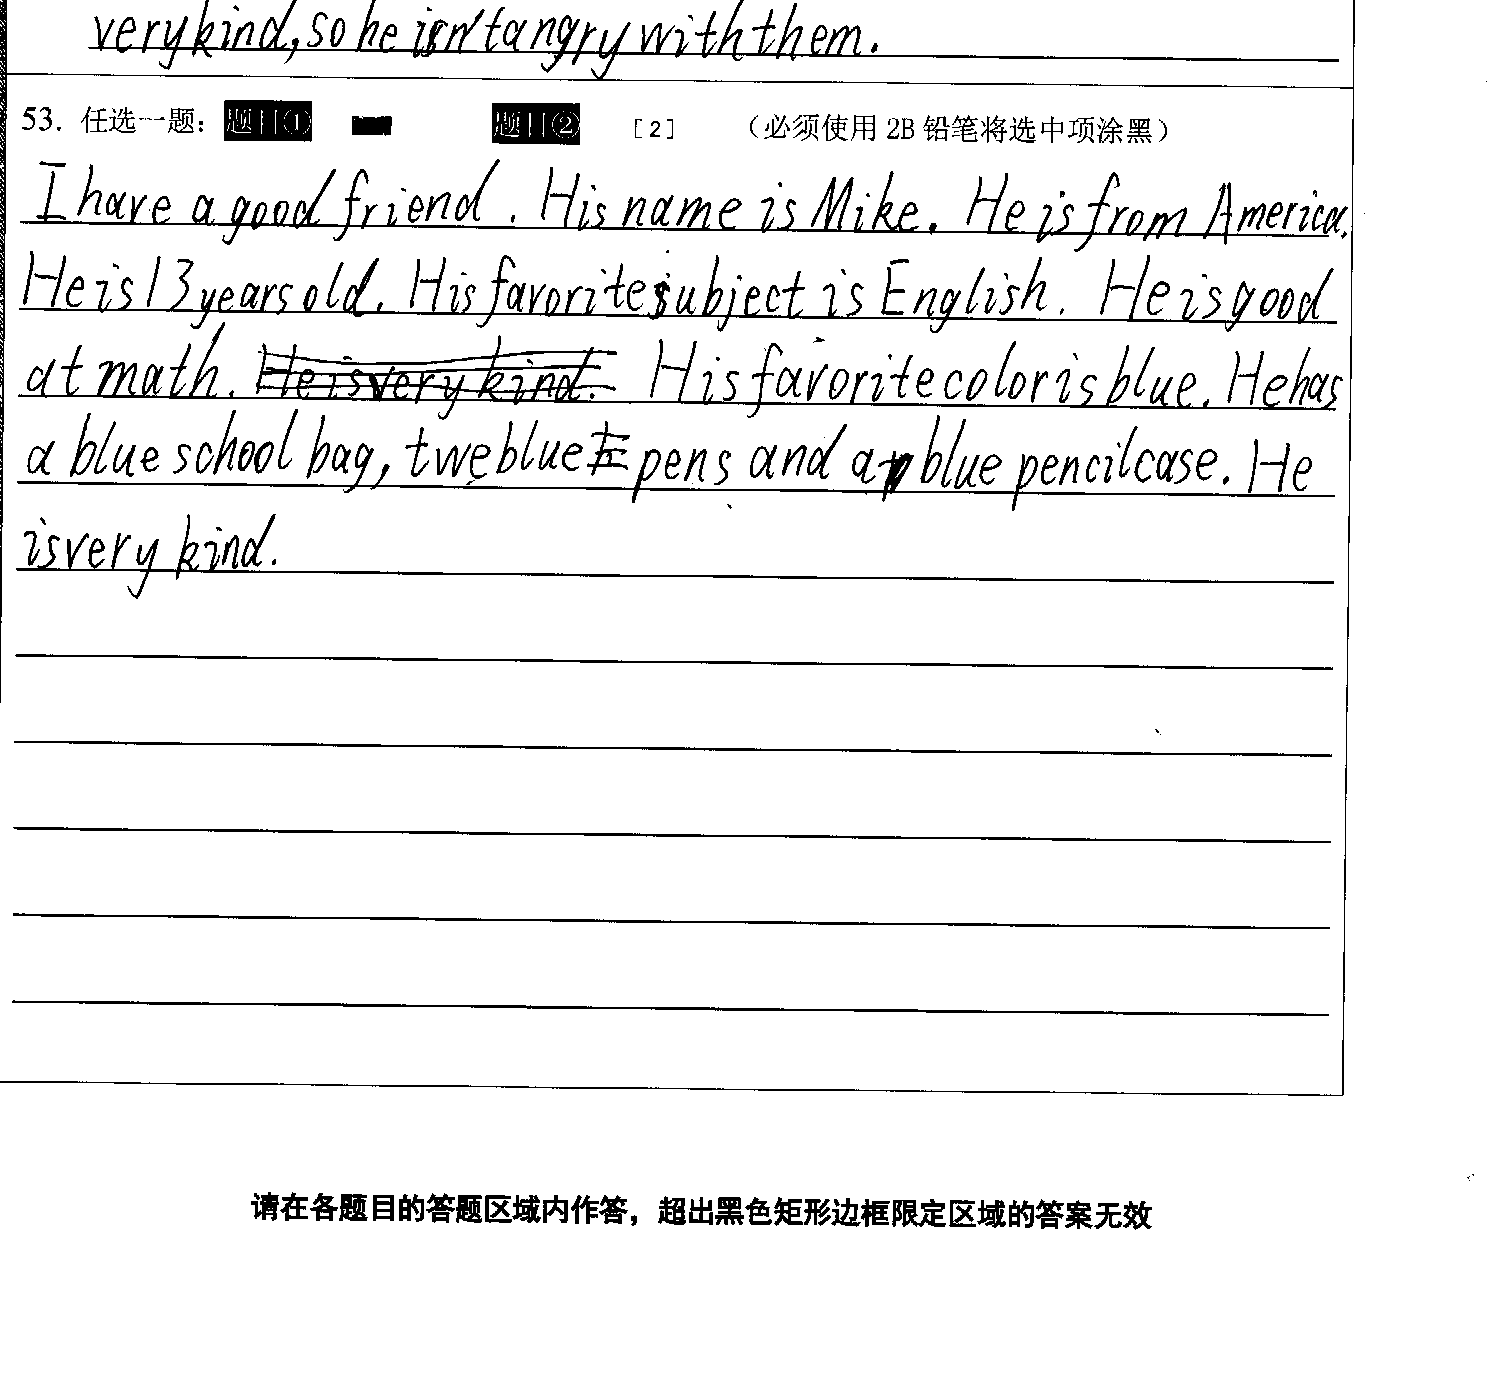 very kind, so he isn't angry with them.
53. 任选一题: 题目① 题目② [2] (必须使用 2B 铅笔将选中项涂黑)
I have a good friend. His name is Mike. He is from America.
He is 13 years old. His favorite subject is English. He is good
at math. He is very kind. His favorite color is blue. He has
a blue school bag, twe blue pens and a blue pencil case. He
is very kind.
请在各题目的答题区域内作答，超出黑色矩形边框限定区域的答案无效